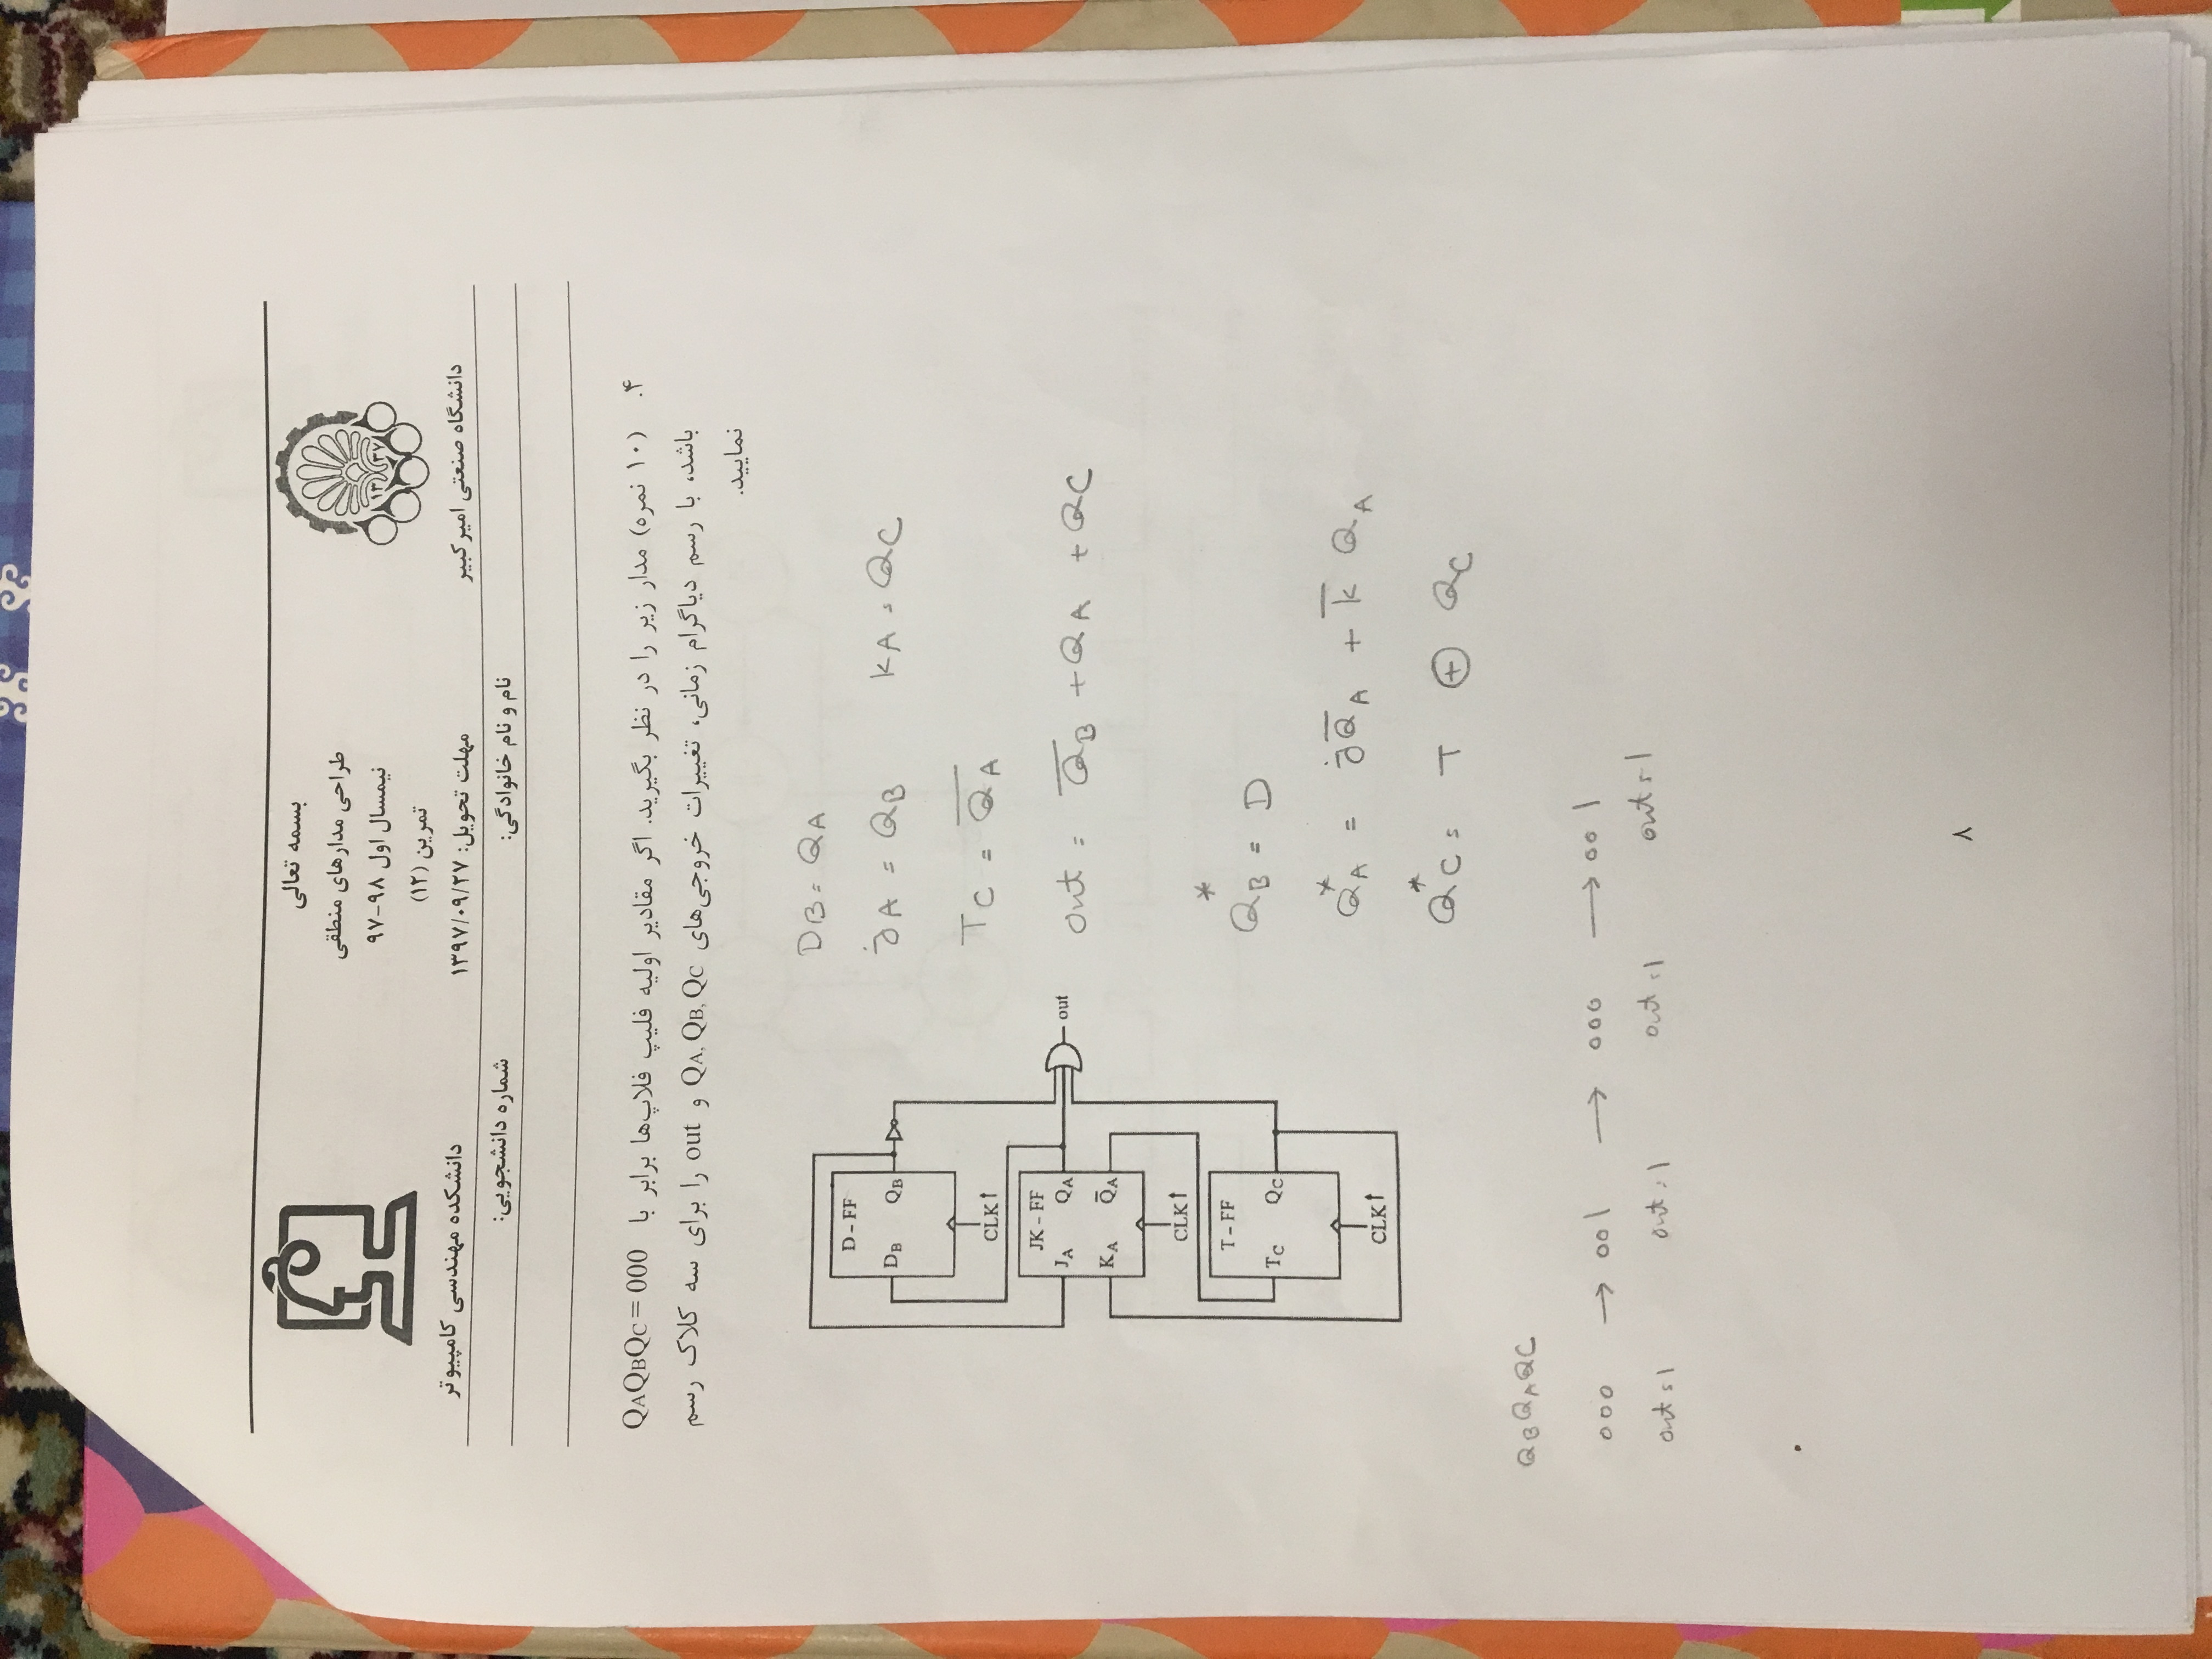 بسمه تعالی
طراحی مدارهای منطقی
نیمسال اول ۹۸-۹۷
تمرین (۱۲)
مهلت تحویل: ۱۳۹۷/۰۹/۲۷
۱۳ ۳۷
دانشگاه صنعتی امیرکبیر
دانشکده مهندسی کامپیوتر
نام و نام خانوادگی: شماره دانشجویی:
۴. (۱۰ نمره) مدار زیر را در نظر بگیرید. اگر مقادیر اولیه فلیپ فلاپ‌ها برابر با QAQBQC = 000
باشد، با رسم دیاگرام زمانی، تغییرات خروجی‌های QA, QB, QC و out را برای سه کلاک رسم
نمایید.
D-FF
DB QB
CLK↑
JK-FF
JA QA
KA Q̅A
CLK↑
T-FF
TC QC
CLK↑
out
DB = QA
JA = QB KA = QC
TC = Q̅A
out = Q̅B + QA + QC
QB* = D
QA* = JQ̅A + K̅ QA
QC* = T ⊕ QC
QBQAQC
000 → 001 → 000 → 001
out = 1 out = 1 out = 1 out = 1
۸